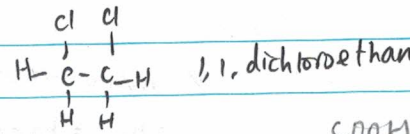 Cl Cl
H- C - C -H 1,1, dichloroethan
H H
COOH